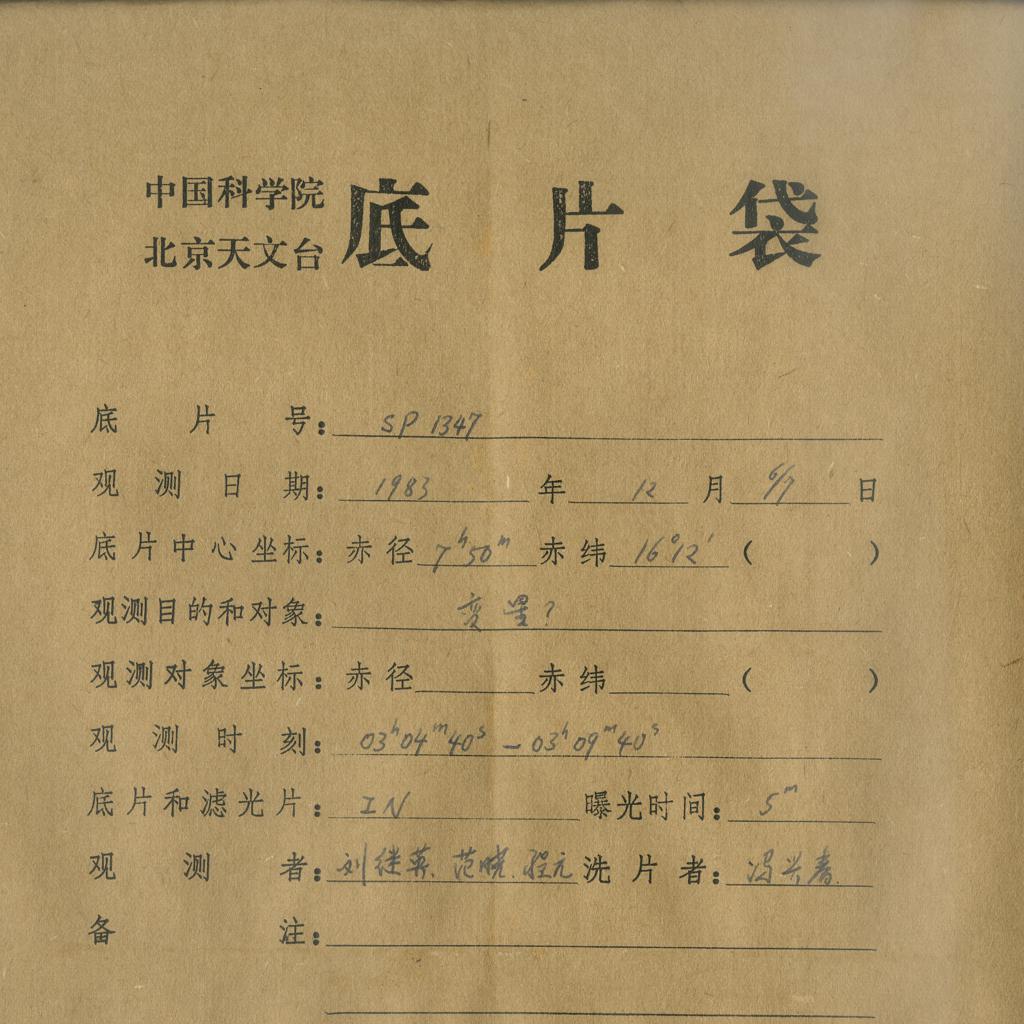 中国科学院
北京天文台
底片袋
底片号: SP 1347
观测日期: 1983 年 12 月 6/7 日
底片中心坐标: 赤径 7h50m 赤纬 16°12′ ( )
观测目的和对象: 变星?
观测对象坐标: 赤径 赤纬 ( )
观测时刻: 03h04m40s – 03h09m40s
底片和滤光片: IN 曝光时间: 5m
观测者: 刘继英. 范晓. 程元 洗片者: 冯兴春.
备注: